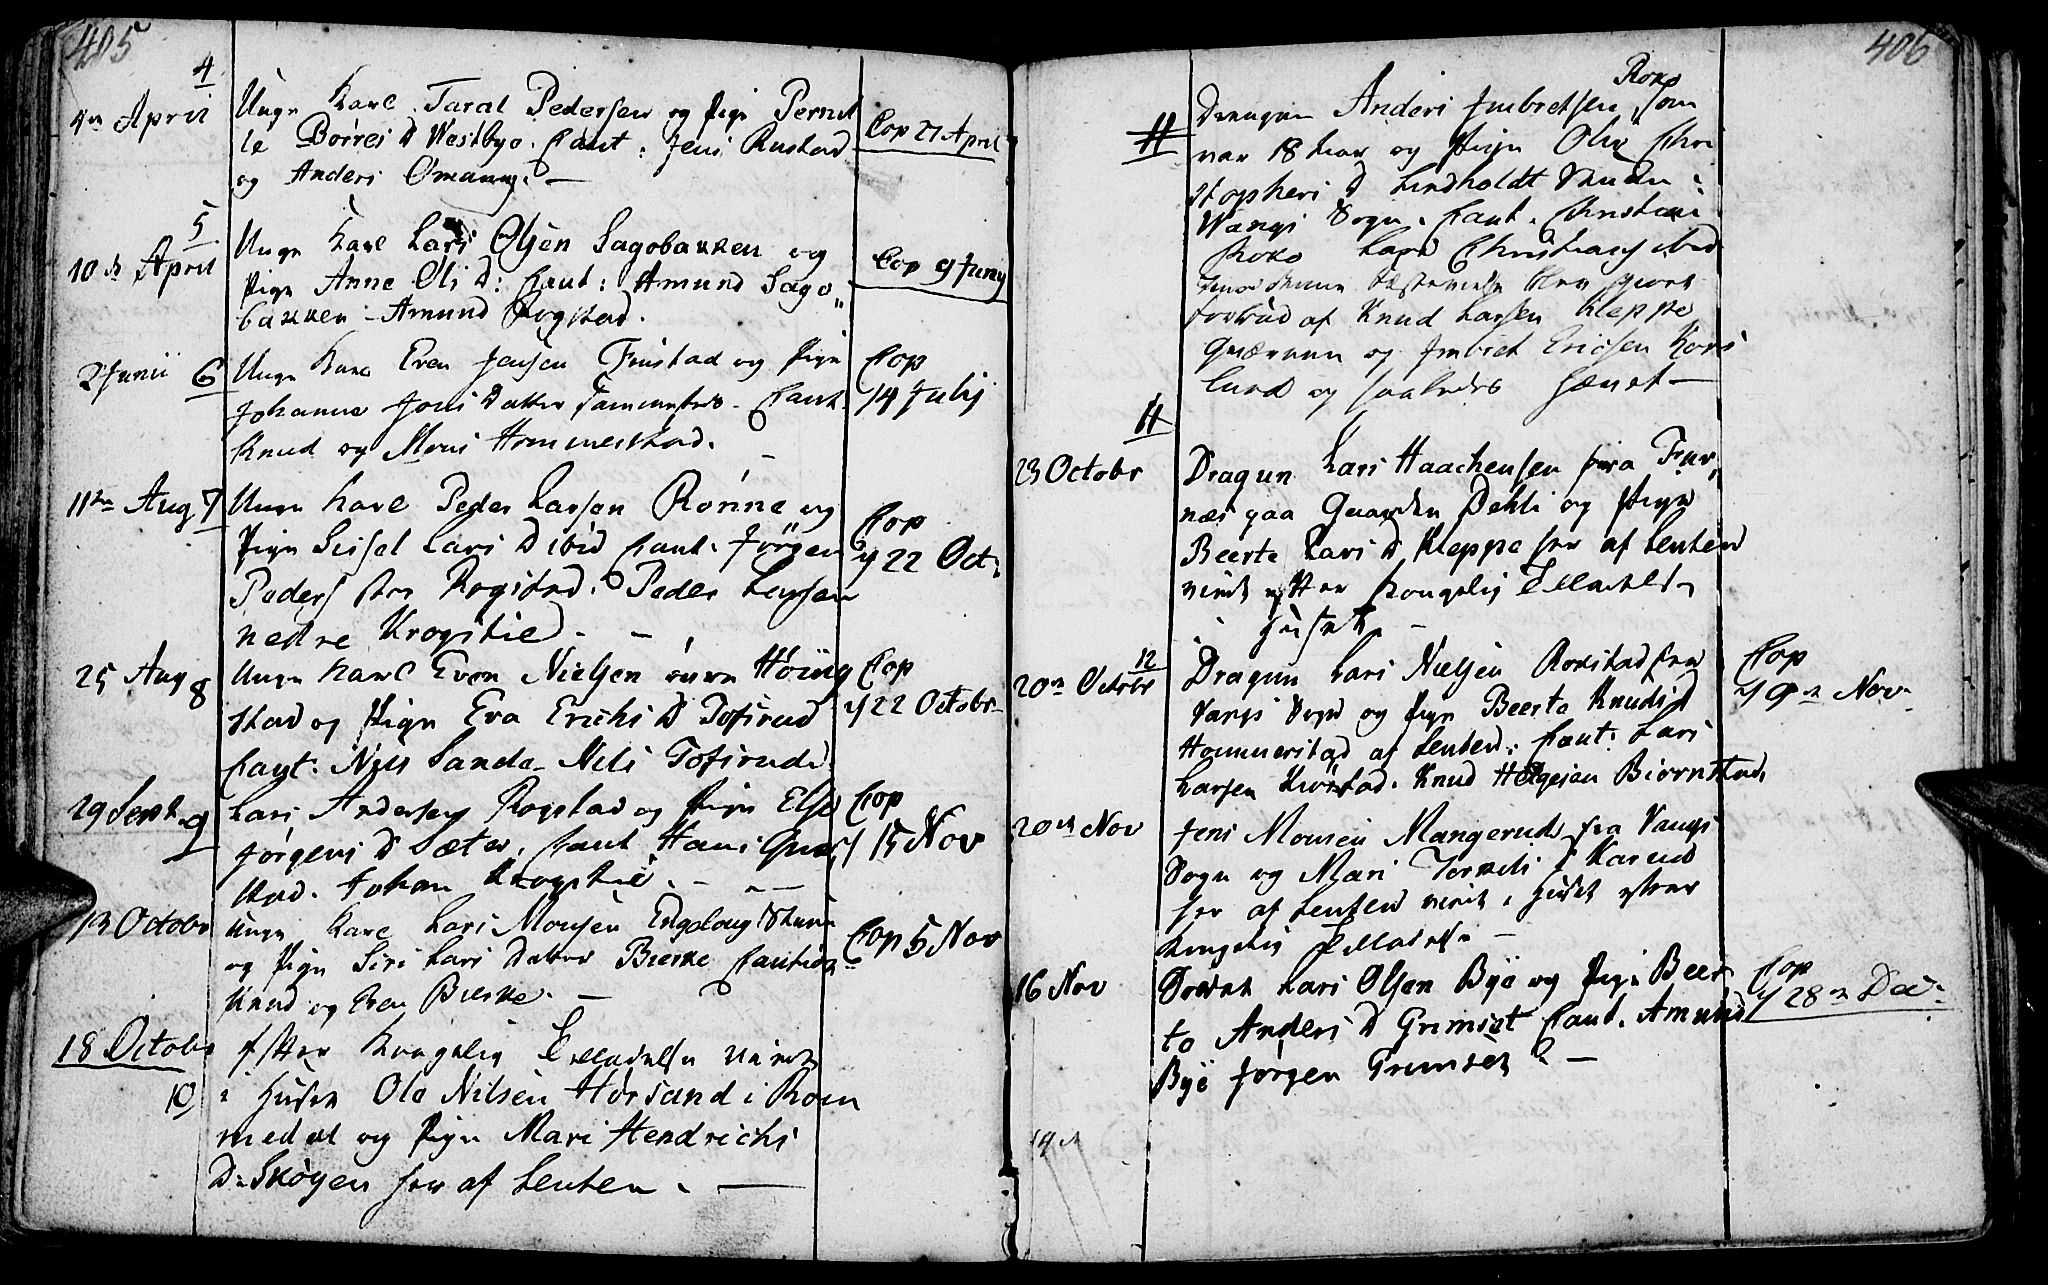 405
4
4de April
Unge Karl Taral Pedersen og Pige Pernil
le Börres D Westbye. Caut: Jens Rustad
og Anders Ömang. —
Cop 27 April
5
10de April
Unge Karl Lars Olsen Sagobakken og
Pige Anne Ols D: Caut: Amund Sago„
bakken - Amund Rogstad.
Cop 9 Juny
2 Junii 6
Unge Karl Even Jensen Finstad og Pige
Johanne Jons Datter sammesteds - Caut.
Knud og Mons Hommerstad. —
Cop
14 Julij
11te Aug 7
Unge Karl Peder Larsen Rönne og
Pige Sissel Lars D ibid Caut. Jörgen
Peders Rogstad. Peder Larsen
nedre Krogstie. —
Cop
y 22 Oct.
25 Aug 8
Unge Karl Even Nielsen Höing
stad og Pige Eva Erichs D Tofsrud
Caut: Niels Sanda - Nils Tofsrud.
Cop
y 22 Octobr
29 Sept 9
Lars Andersen Rogstad og Pige Else
Jörgens D Sæter. Caut Hans
stad. Johan Krogstie. —
Cop
15 Nov
13 Octobr
Unge Karl Lars Monsen Engelaug
og Pige Siri Lars Datter Bierke Caution
Knud og Bierke. —
Cop 5 Nov
18 Octobr
10
efter Kongelig Tilladelse viet
i Huset Ole Nilsen Hörsand i Rom
medal og Pige Mari Hendrichs
D. Skögen her af Leuten. —
406
11
Roko
Dragun Anders Imbretsen, som
var 18 Aar og Pige Olia Chri
stophers D Lindholdt
Wangs Sogn. Caut. Christian
Roko Lars Christians ibid
denne blev giort
forbud af Knud Larsen Kleppe
og Imbret Ericsen Kors
lund og saaledes hævet —
11
23 Octobr
Dragun Lars Haachensen fra Fur„
næs paa Gaarden Dehli og Pige
Beerte Lars D Kleppe her af Leuten
viet efter Kongelig Tilladelse
i Huset. —
12
20de Octobr
Dragun Lars Nielsen Rokstad fra
Vangs Sogn og Pige Beerte Knuds D
Hommerstad af Leuten: Caut: Lars
Larsen Kiörstad. Knud Helgesen Biörnstad.
Cop
y 9de Nov.
20de Nov
Jens Monsen Mangerud fra Vangs
Sogn og Mari Torkels D Karud
her af Leuten viet i Huset efter
Kongelig Tilladelse —
16 Nov
Soldat Lars Olsen Bye og Pige Beer
te Anders D Grimset Caut. Amund
Bye Jörgen Grimset —
Cop
y 28de Dec.